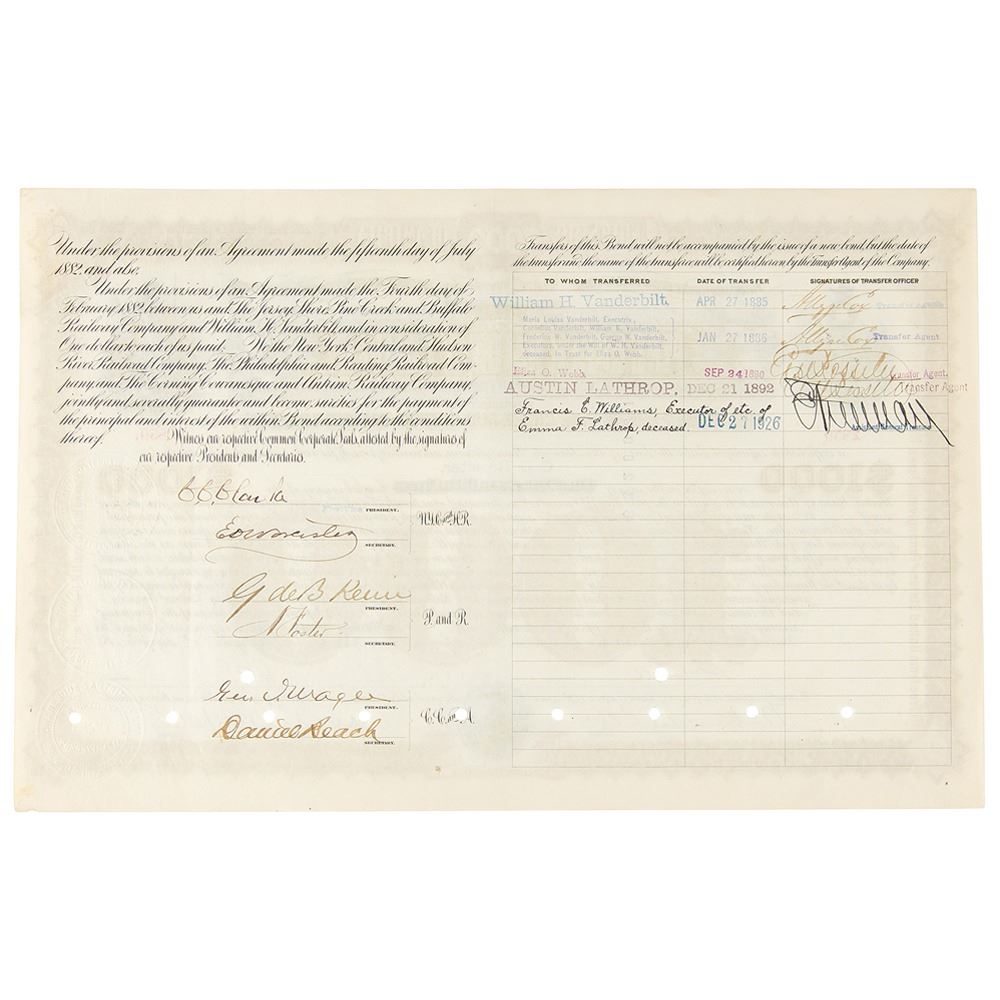 Under the provisions of an Agreement made the fifteenth day of July
1882, and also.
Under the provisions of an Agreement made the Fourth day of
February 1882 between us and The Jersey Shore, Pine Creek and Buffalo
Railway Company and William H. Vanderbilt, and in consideration of
One dollar to each of us paid. We the New York Central and Hudson
River Railroad Company, The Philadelphia and Reading Railroad Com-
pany, and The Corning Cowanesque and Antrim Railway Company,
jointly and severally guarantee and become sureties for the payment of
the principal and interest of the within Bond according to the conditions
thereof.
Witness our respective Common Corporate Seals, attested by the signatures of
our respective Presidents and Secretaries.
C. C. Clarke
PRESIDENT.
N.Y.C. and H.R.
E D Worcester
SECRETARY.
G de B Keim
PRESIDENT.
P. and R.
Foster
SECRETARY.
Geo J. Magee
PRESIDENT.
C. C. and A.
Daniel Beach
SECRETARY.
Transfers of this Bond will not be accompanied by the issue of a new bond, but the date of
the transfer and the name of the transferee will be certified hereon by the Transfer Agent of the Company.
TO WHOM TRANSFERRED DATE OF TRANSFER SIGNATURES OF TRANSFER OFFICER
William H. Vanderbilt. APR 27 1885
Maria Louisa Vanderbilt, Executrix,
Cornelius Vanderbilt, William K. Vanderbilt,
Frederick W. Vanderbilt, George W. Vanderbilt,
Executors, under the Will of W. H. Vanderbilt,
deceased, in Trust for Eliza O. Webb.
JAN 27 1886 Transfer Agent
Eliza O. Webb SEP 24 1890 Transfer Agent.
AUSTIN LATHROP. DEC 21 1892 Transfer Agent
Francis E. Williams, Executor of etc. of
Emma F. Lathrop, deceased. DEC 27 1926